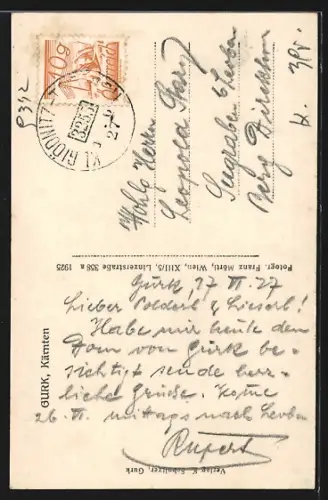 P332
10g
KL. GLÖDNITZ
Wohlg Herrn
Leopold
Seegraben b. Leoben
Berg
Photogr. Franz Mörtl, Wien, XIII/5, Linzerstraße 358 a 1925
GURK, Kärnten
Gurk, 17 VI. 27
Lieber Polderl & Lieserl!
Habe mir heute den
Dom von Gurk be-
sichtigt sende herz-
liche Grüße. Kome
26. VI. mittags nach Leoben
Rupert
Verlag F. Schnitzer, Gurk